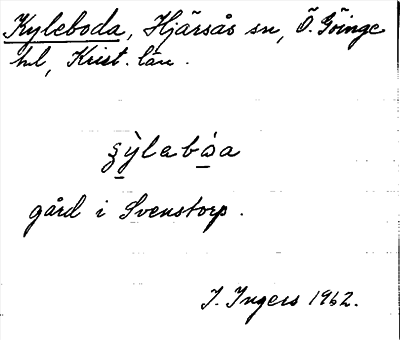 Kyleboda, Hjärsås sn, Ö. Göinge
hd, Krist. län.
ȿy̆lebo̱a
gård i Svenstorp.
I. Ingers 1962.